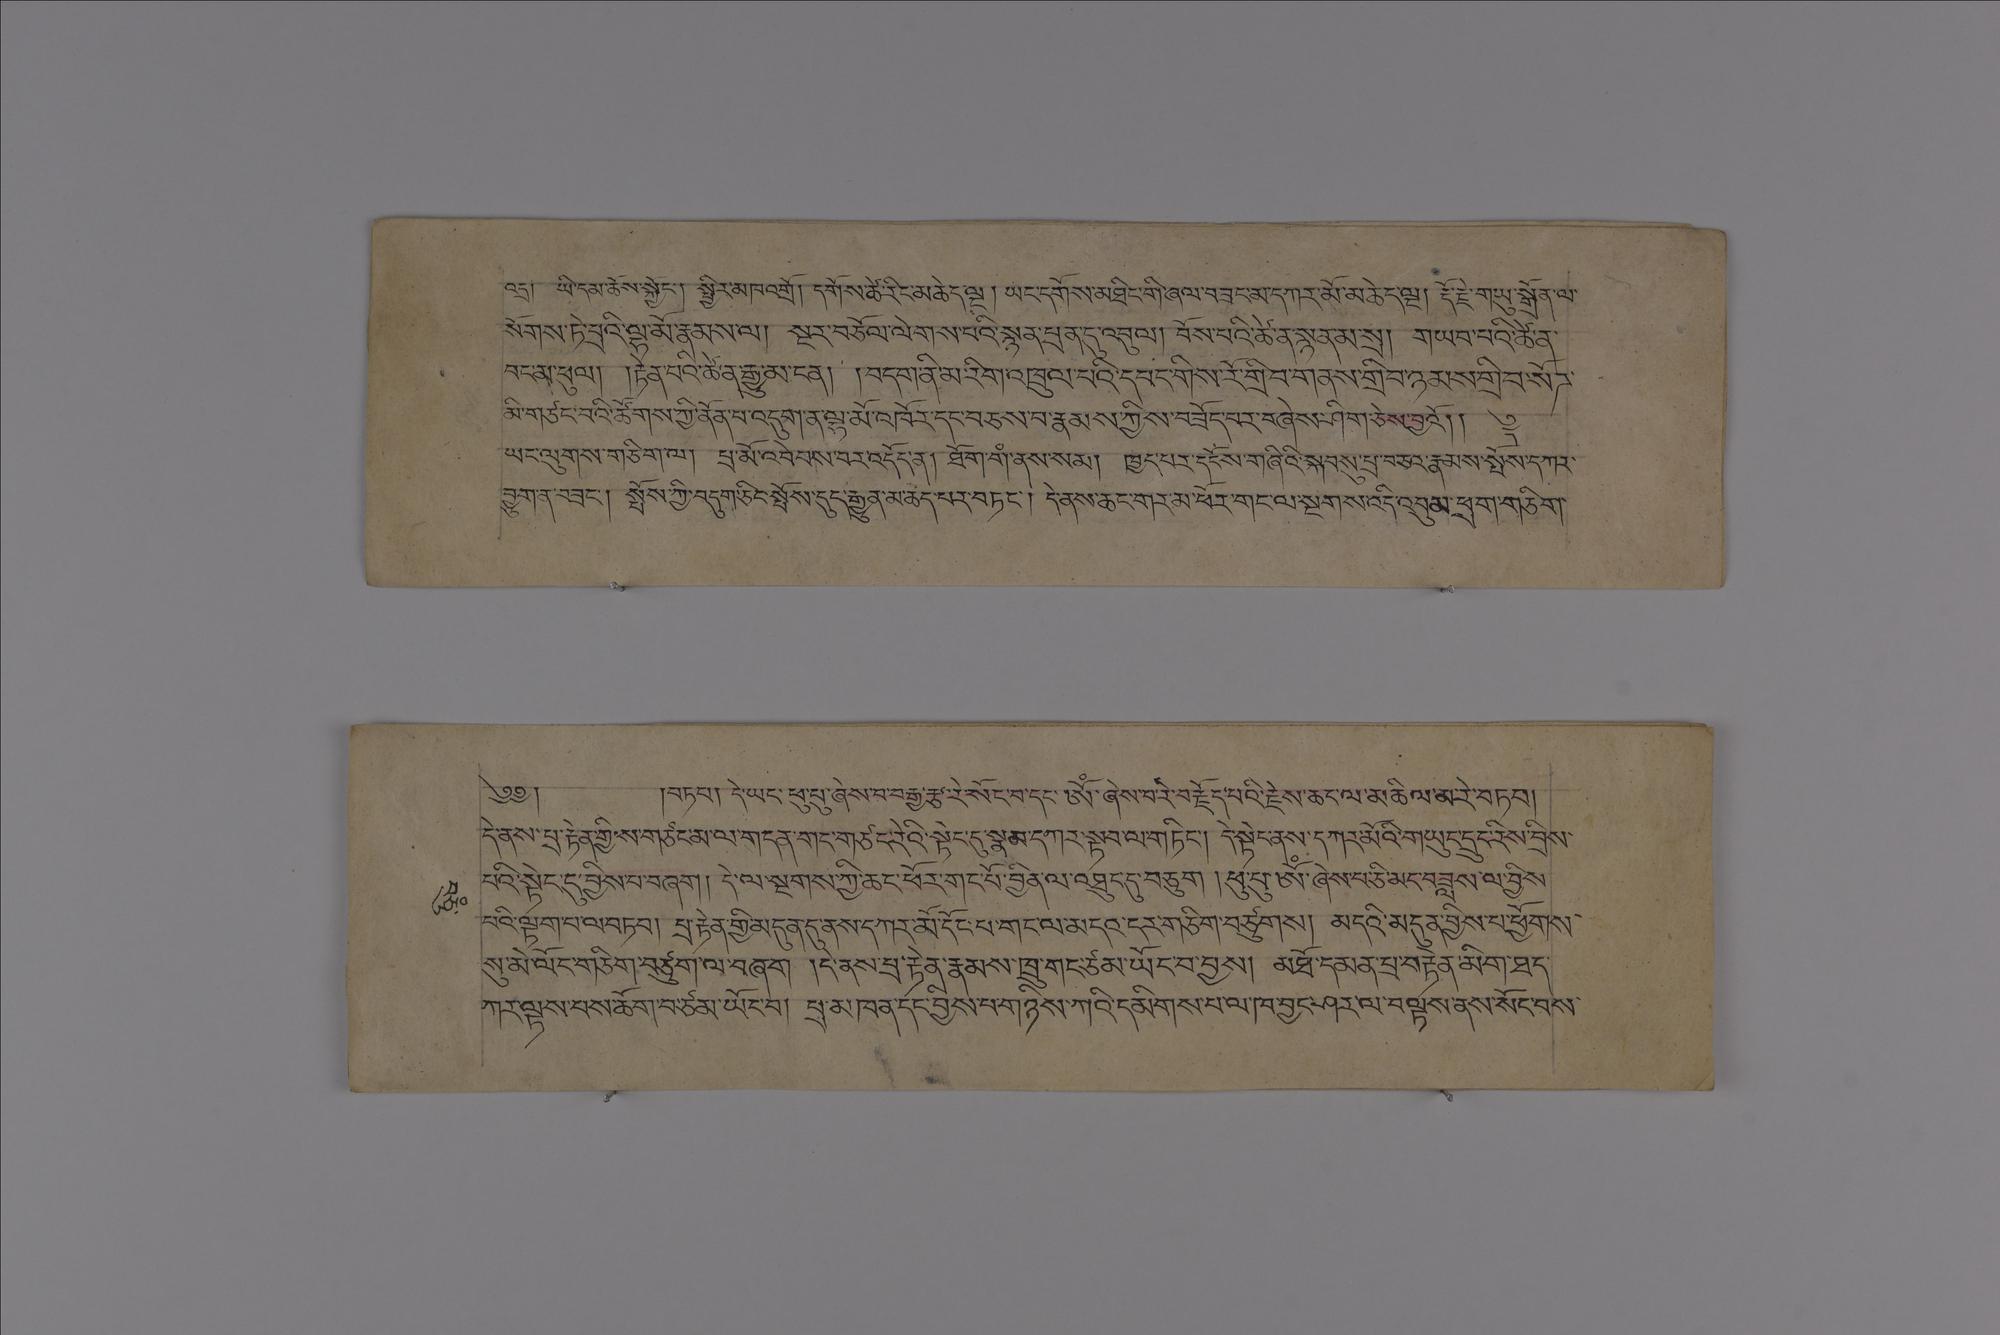 འདྲ། ཡི་དམ་ཆོས་སྐྱོང་། སྤྱིར་མཁའ་འགྲོ། དགོས་ཚེ་རིང་མཆེད་ལྔ། ཡང་དགོས་མཐིང་གི་ཞལ་བཟང་མ་དཀར་མོ་མཆེད་ལྔ། རྡོ་རྗེ་གཡུ་སྒྲོན་ལ་
སོགས་ཏེ་པྲའི་ལྷ་མོ་རྣམས་ལ། སྔར་བཅོལ་ལེགས་པའི་སྙན་པྲན་དུ་འབུལ། བོས་པའི་ཚེ་ན་སྙན་མ་སྲ། གཡབ་པའི་ཚེ་ན་
བདན་ཕུལ། །རྟེན་པའི་ཚེ་ན་རྒྱུ་མ་ངན། །བདག་ནི་མ་རིག་འཁྲུལ་པའི་དབང་གིས་རོ་གྲིབ་གནས་གྲིབ་ཉམས་གྲིབ་སོར་
མི་གཙང་བའི་ཚོགས་ཀྱི་ནོན་པ་འདུག་ན་ལྷ་མོ་འཁོར་དང་བཅས་པ་རྣམས་ཀྱིས་བཟོད་པར་བཞེས་ཤིག་ཅེས་བྱའོ།།
ཡང་ལུགས་གཅིག་ལ། པྲ་མོ་འབེབས་པར་འདོད་ན། ཐོག་གཾ་ནས་སམ། ཁྱད་པར་དངོས་གཞིའི་སྐབསུ་པྲ་བཅའ་རྣམས་སྤོས་དཀར་
བྱུག་ན་བཟང་། སྤོས་ཀྱི་བདུག་ཅིང་སྤོས་དུད་རྒྱུན་མ་ཆད་པར་བཏང་། དེ་ནས་ཆང་གར་མ་ཕོར་གང་ལ་སྔགས་འདི་འབུམ་ཕྲག་གཅིག་
༄༅། །བཏབ། དེ་ཡང་ཕུ་ཕུ་ཞེས་བ་བརྒྱ་རྩ་རེ་སོང་བ་དང་ཨོཾ་ཞེས་བ་རེ་བརྗོད་པའི་རྗེས་ཆང་ལ་མ་ཆིལ་མ་རེ་བཏབ།
དེ་ནས་པྲ་རྟེན་གྱི་ས་གཙང་མ་ལ་གདན་གང་གཙང་རེའི་སྟེང་དུ་སྣམ་དཀར་སྟབ་ལ་གཏིང་། དེ་སྟེང་ནས་དཀར་མོའི་གཡུང་དྲུང་རིས་བྲིས་
པའི་སྟེང་དུ་བྱིས་པ་བཞག། དེ་ལ་སྔགས་ཀྱི་ཆང་ཕོར་གང་པོ་བྱིན་ལ་འཐུང་དུ་བཅུག །ཕུ་ཕུ་ཨོཾ་ཞེས་པ་ཅི་མང་བཟླས་ལ་བྱིས་
པའི་ལྟག་པ་ལ་བཏབ། པྲ་རྟེན་གྱི་མདུན་དུ་ནས་དཀར་མོ་དོང་པ་གང་ལ་མདའ་དར་གཅིག་བཙུགས། མདའི་མདུན་བྱིས་པ་ཕྱོགས་
སུ་མེ་ལོང་གཅིག་བཙུག་ལ་བཞག །དེ་ནས་པྲ་རྟེན་རྣམས་ཁྲུ་གང་ཙམ་ཡོང་བ་བྱས། མཐོ་དམན་པྲ་བརྟེན་མིག་ཐད་
ཀར་ལྟས་པས་ཆོག་བ་ཙམ་ཡོང་བ། པྲ་མཁན་དང་བྱིས་པ་གཉིས་ཀའི་དམིགས་པ་ལ།ཁ་བྱང་ཤར་ལ་བལྟས་ནས་སོང་བས་